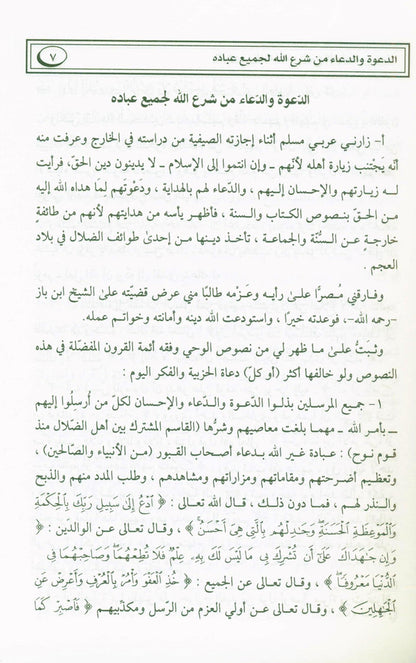 الدعوة والدعاء من شرع الله لجميع عباده ٧
الدعوة والدعاء من شرع الله لجميع عباده
أ- زارني عربي مسلم أثناء إجازته الصيفية من دراسته في الخارج وعرفت منه
أنّه يَجْتنب زيارة أهله لأنّهم ــ وإن انتموا إلى الإسلام ــ لا يدينون دين الحقّ، فرأيت
له زيارتهم والإحسان إليهم، والدّعاء لهم بالهداية، ودَعْوَتَهم لِما هداه الله إليه
من الحقّ بنصوص الكتاب والسنة، فأظهر يأسه من هدايتهم لأنهم من طائفةٍ
خارجة عن السُّنّة والجماعة، تأخذ دينها من إحدىٰ طوائف الضلال في بلاد
العجم.
وفارقني مُصرًّا علىٰ رأيه وعَزْمه طالبًا مني عرض قضيّته علىٰ الشيخ ابن باز
-رحمه الله-، فوعدته خيرًا، واستودعت الله دينه وأمانته وخواتم عمله.
وثبَتُّ علىٰ ما ظهر لي من نصوص الوحي وفقه أئمة القرون المفضّلة في هذه
النصوص ولو خالفها أكثر (أو كل) دعاة الحزبية والفكر اليوم:
١- جميع المرسلين بذلوا الدّعوة والدّعاء والإحسان لكلّ من أُرسِلُوا إليهم
ــ بأمر الله ــ مهما بلغت معاصيهم وشرُّها (القاسم المشترك بين أهل الضّلال منذ
قوم نوح): عبادة غير الله بدعاء أصحاب القبور (من الأنبياء والصّالحين)،
وتعظيم أضرحتهم ومقاماتهم ومزاراتهم ومشاهدهم، وطلب المدد منهم والذبح
والنذر لهم، فما دون ذلك، قال الله تعالى: ﴿ ٱدْعُ إِلَىٰ سَبِيلِ رَبِّكَ بِٱلْحِكْمَةِ
وَٱلْمَوْعِظَةِ ٱلْحَسَنَةِ وَجَٰدِلْهُم بِٱلَّتِى هِىَ أَحْسَنُ ﴾، وقال تعالى عن الوالدَين: ﴿
وَإِن جَٰهَدَاكَ عَلَىٰٓ أَن تُشْرِكَ بِى مَا لَيْسَ لَكَ بِهِۦ عِلْمٌ فَلَا تُطِعْهُمَا وَصَاحِبْهُمَا فِى
ٱلدُّنْيَا مَعْرُوفًا ﴾، وقال تعالى عن الجميع: ﴿ خُذِ ٱلْعَفْوَ وَأْمُرْ بِٱلْعُرْفِ وَأَعْرِضْ عَنِ
ٱلْجَٰهِلِينَ ﴾، وقال تعالى عن أولي العزم من الرّسل ومكذّبيهم ﴿ فَٱصْبِرْ كَمَا